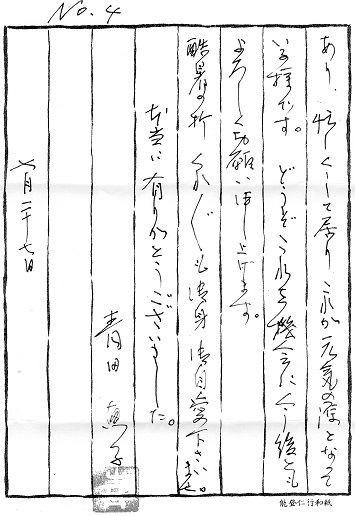 No. 4
あり、忙しくして居り これが元気の源となって
いる様です。どうぞこれを機会に今後とも
よろしく御願い申し上げます。
酷暑の折 くれぐれも御身御自愛下さいませ。
本当に有りがとうございました。
青田
七月二十七日
能登仁行和紙